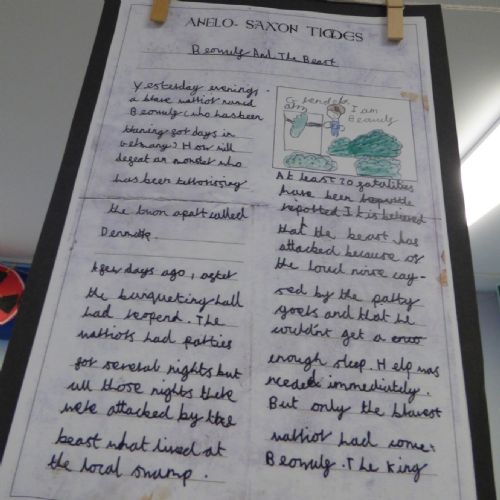 ANGLO-SAXON TIMES
Beowulf And The Beast
Yesterday evening,
a brave warrior named
Beowulf (who has been
training for days in
Germany) How will
defeat an monster who
has been terrorising
the town apart called
Denmark.
A few days ago, after
the banqueting hall
had reopend. The
warriors had parties
for several nights but
all those nights there
were attacked by the
beast what lived at
the local swamp.
Grendels
arm
I am
Beowulf
At least 20 fatalities
have been
reported. It is believed
that the beast has
attacked because of
the loud noise cau-
sed by the party
goers and that he
wouldn't get a
enough sleep. Help was
needed immediately.
But only the bravest
warrior had come:
Beowulf. The King